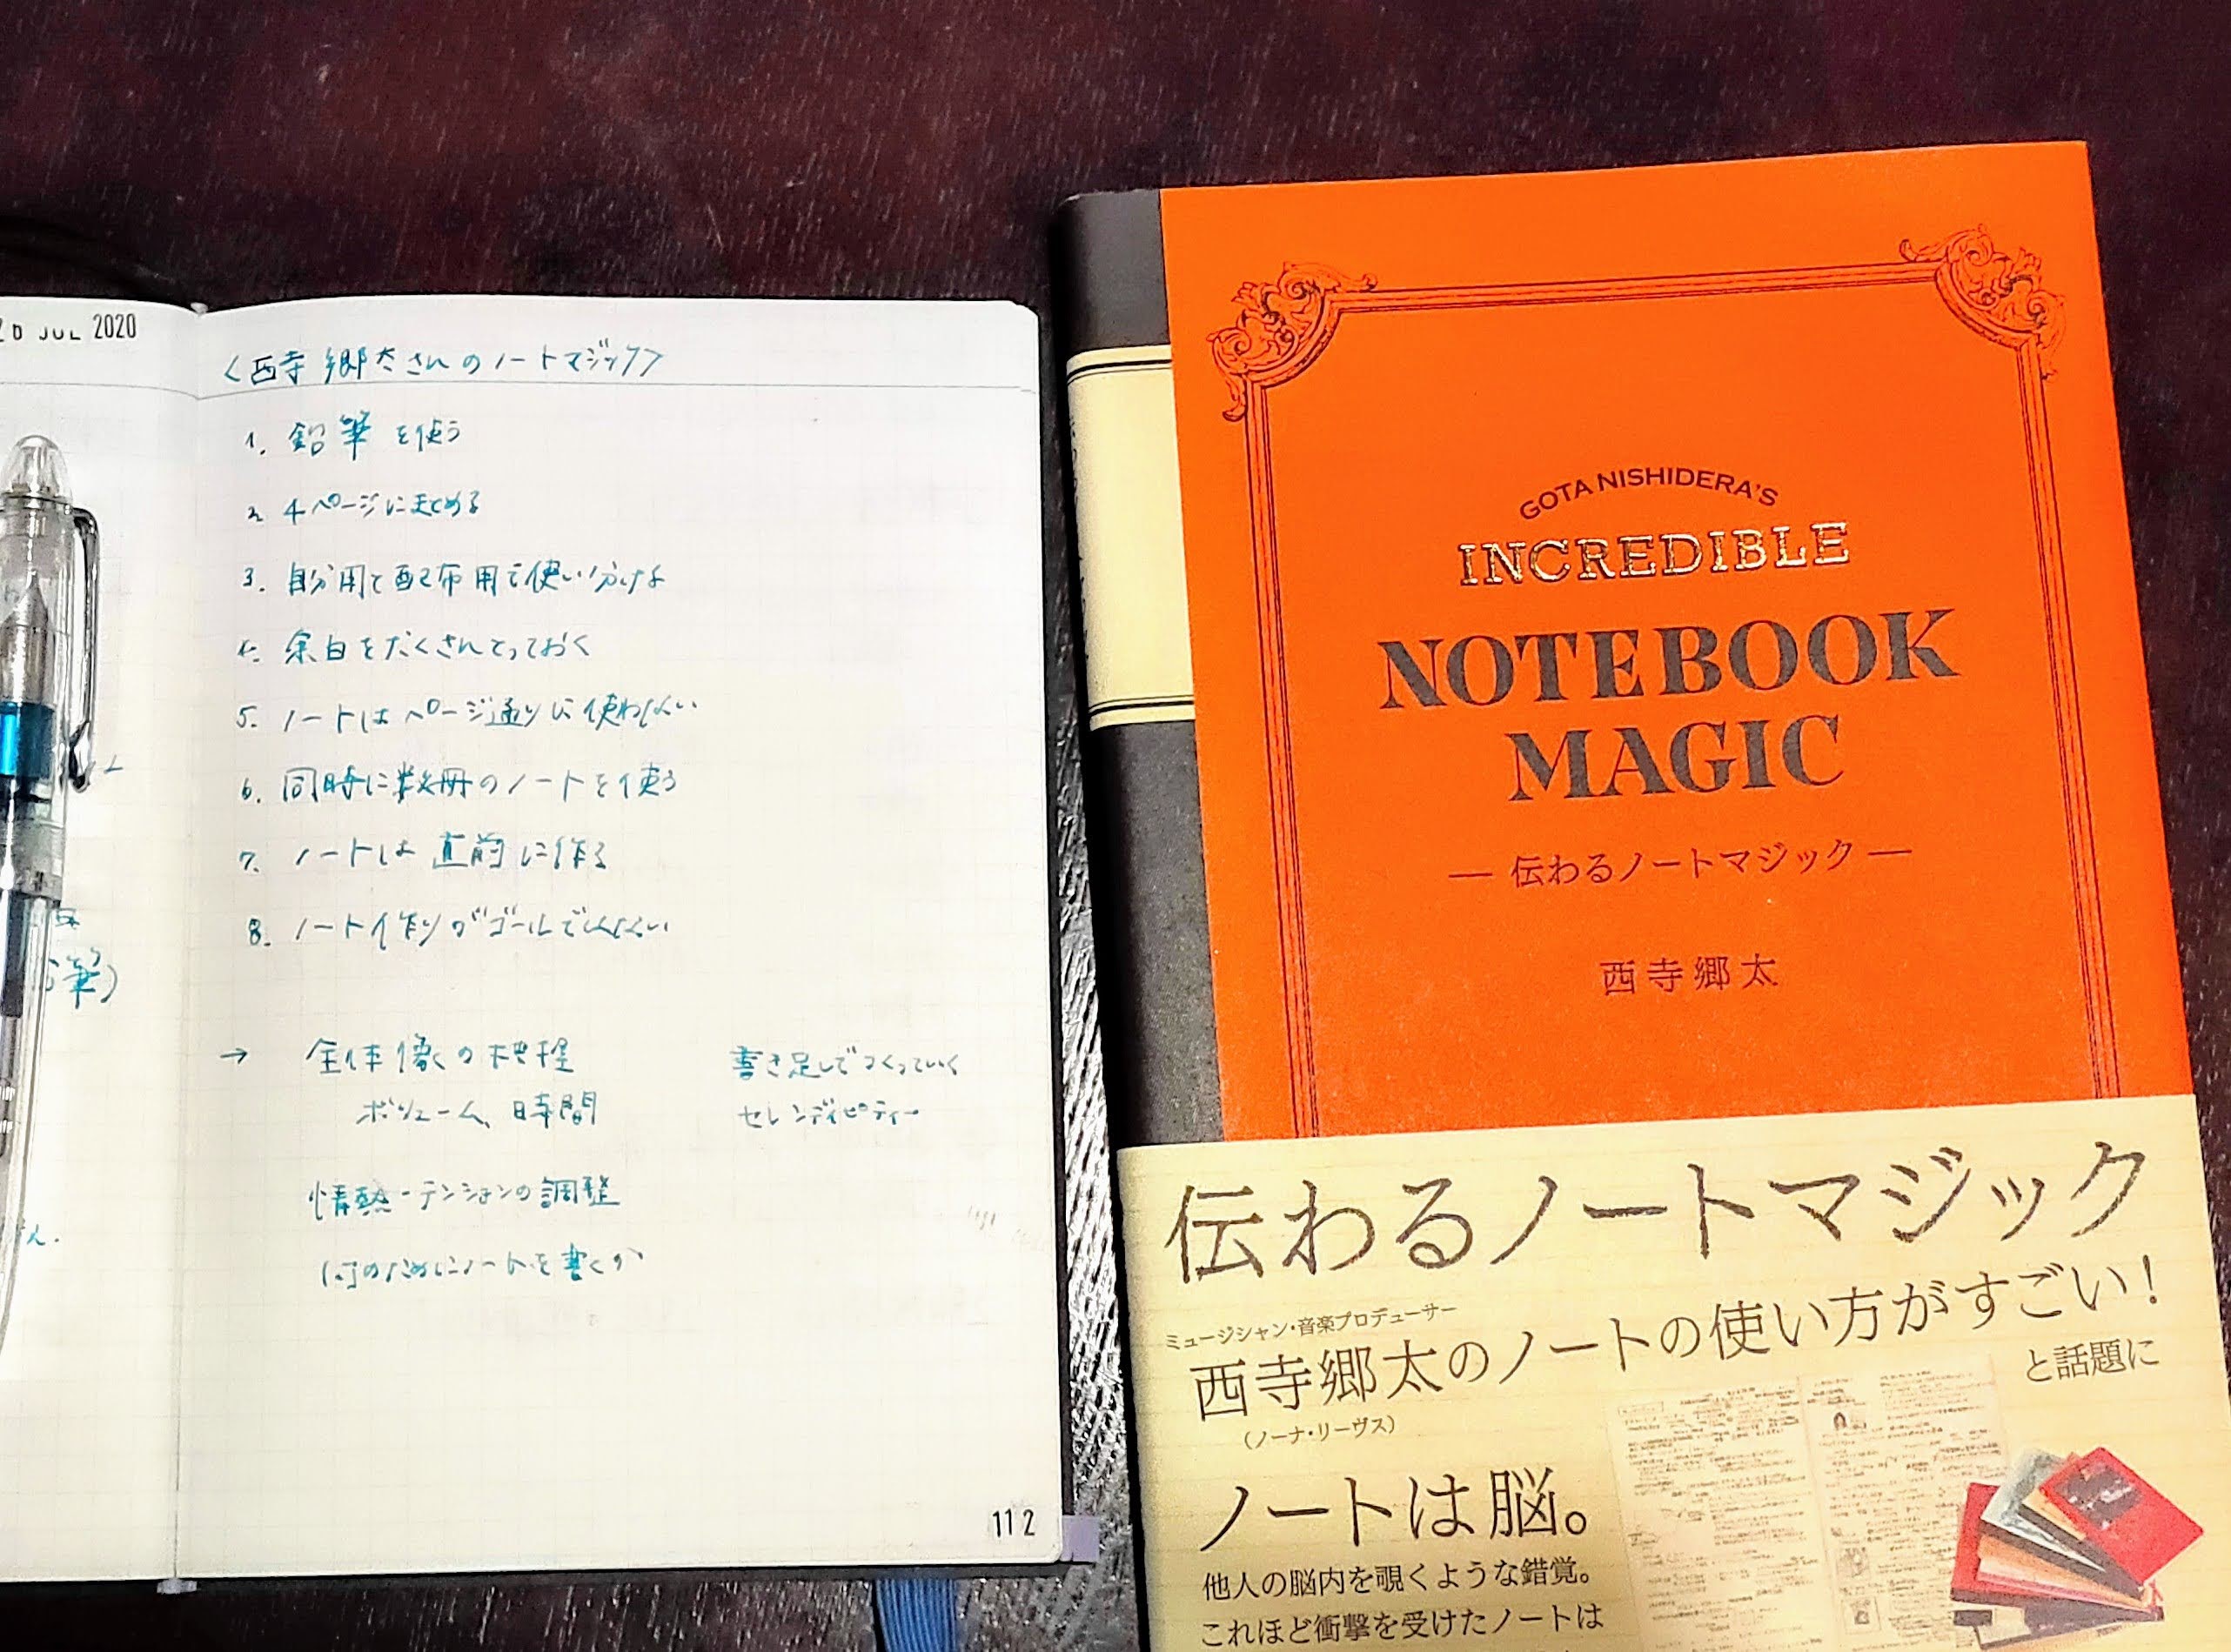 JUL 2020
<西寺郷太さんのノートマジック>
1. 鉛筆を使う
2. 4ページにまとめる
3. 自分用と配布用で使い分ける
4. 余白をたくさんとっておく
5. ノートはページ通りに使わない
6. 同時に数冊のノートを使う
7. ノートは直前に作る
8. ノート作りがゴールではない
→ 全体像の把握
ボリューム、時間
情熱-テンションの調整
何のためにノートを書くか
書き足してつくっていく
セレンディピティー
112
筆)
GOTA NISHIDERA'S
INCREDIBLE
NOTEBOOK
MAGIC
— 伝わるノートマジック —
西寺郷太
伝わるノートマジック
ミュージシャン・音楽プロデューサー
西寺郷太のノートの使い方がすごい!
(ノーナ・リーヴス)
と話題に
ノートは脳。
他人の脳内を覗くような錯覚。
これほど衝撃を受けたノートは